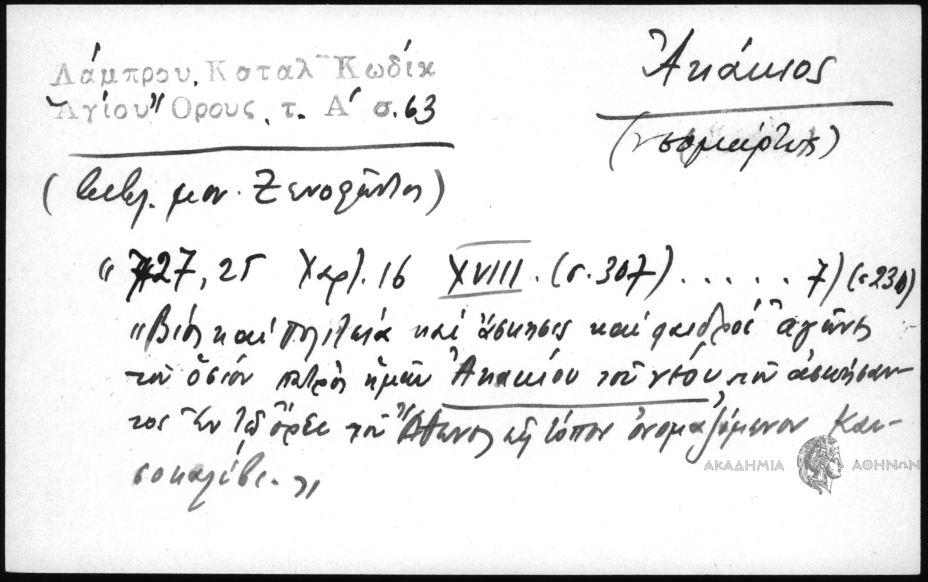 Λάμπρου, Καταλ Κωδίκ
Ἁγίου Ὄρους, τ. Α' σ. 63
Ἀκάκιος
(νεομάρτυς)
(βιβλ. μον. Ξενοφῶντος)
" 727, 25 Χαρτ. 16 XVIII. (σ. 307) ..... 7) (σ 230)
"Βίος καὶ πολιτεία καὶ ἄσκησις καὶ φαιδροὶ ἀγῶνες
τοῦ ὁσίου πατρὸς ἡμῶν Ἀκακίου τοῦ νέου τοῦ ἀσκήσαν-
τος ἐν τῷ ὄρει τοῦ Ἄθωνος εἰς τόπον ὀνομαζόμενον Καυ-
σοκαλύβι. "
ΑΚΑΔΗΜΙΑ ΑΘΗΝΩΝ